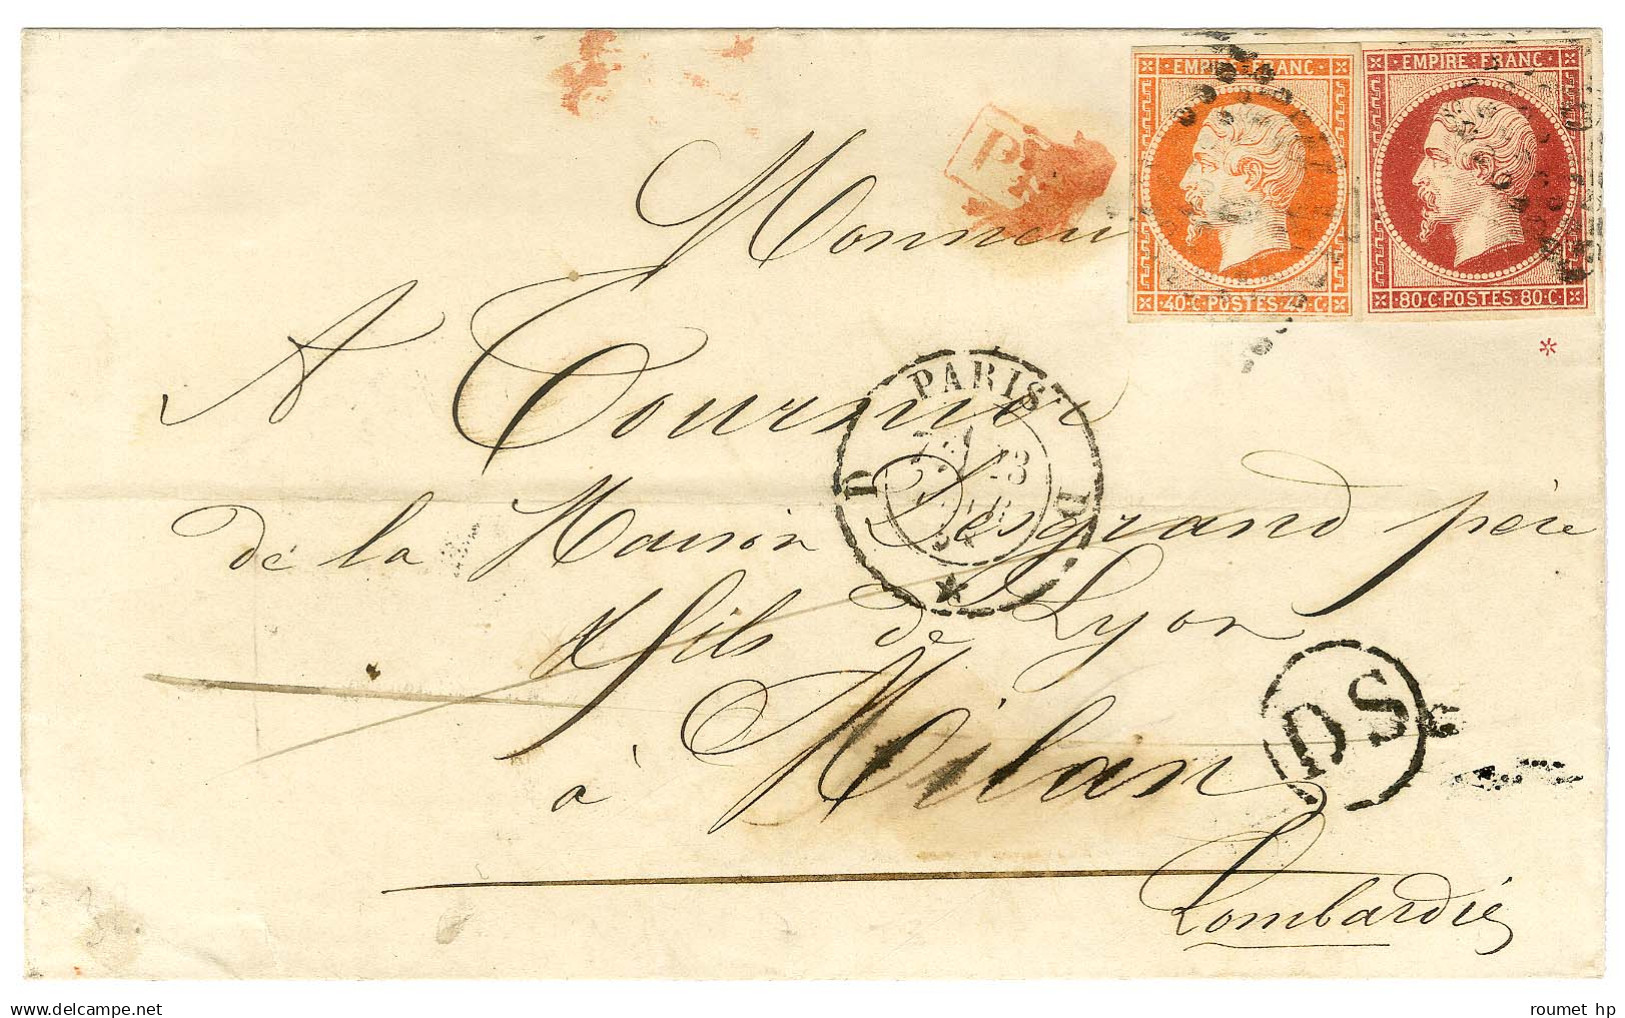 EMPIRE FRANC
40·C·POSTES·40·C
EMPIRE·FRANC
80·C·POSTES·80·C
*
Monsieur
A Tournier
de la Maison Desgrand père
& fils de Lyon
à Milan
Lombardie
PARIS
D D
DS
www.delcampe.net
roumet hp